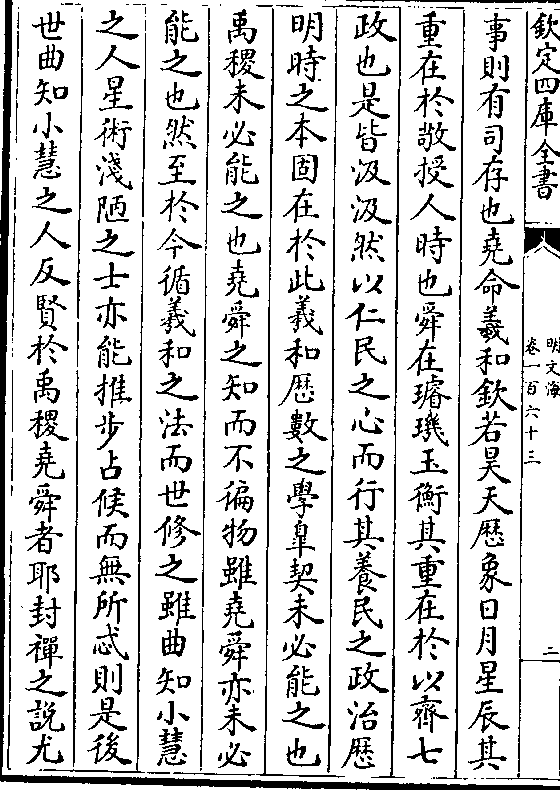 欽定四庫全書
明文海
卷一百六十三
二
事則有司存也堯命羲和欽若昊天歴象日月星辰其
重在於敬授人時也舜在璿璣玉衡其重在於以齊七
政也是皆汲汲然以仁民之心而行其養民之政治歴
明時之本固在於此羲和歴數之學臯契未必能之也
禹稷未必能之也堯舜之知而不徧物雖堯舜亦未必
能之也然至於今循羲和之法而世修之雖曲知小慧
之人星術淺陋之士亦能推步占候而無所忒則是後
世曲知小慧之人反賢於禹稷堯舜者耶封禪之說尤